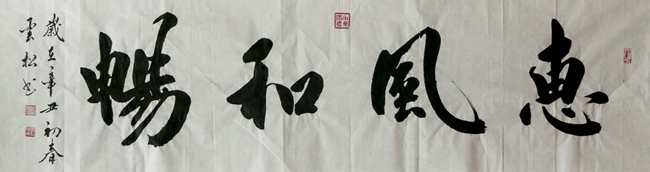 惠風和暢
歲在辛丑初春
雲松書